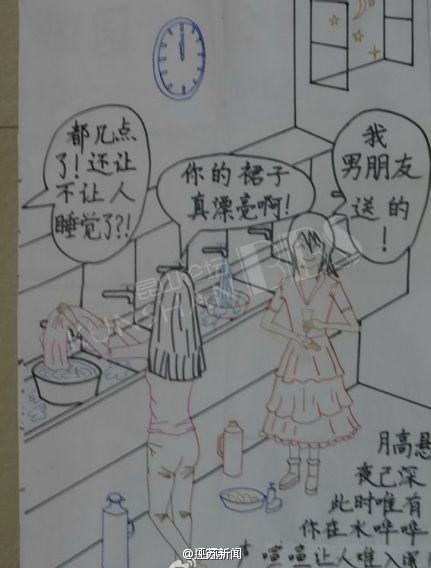 都几点
了！还让
不让人
睡觉了？！
你的裙子
真漂亮啊！
我
男朋友
送的
！
月高悬
夜已深
此时唯有
你在水哗哗
喧喧让人难入眠
@江苏新闻